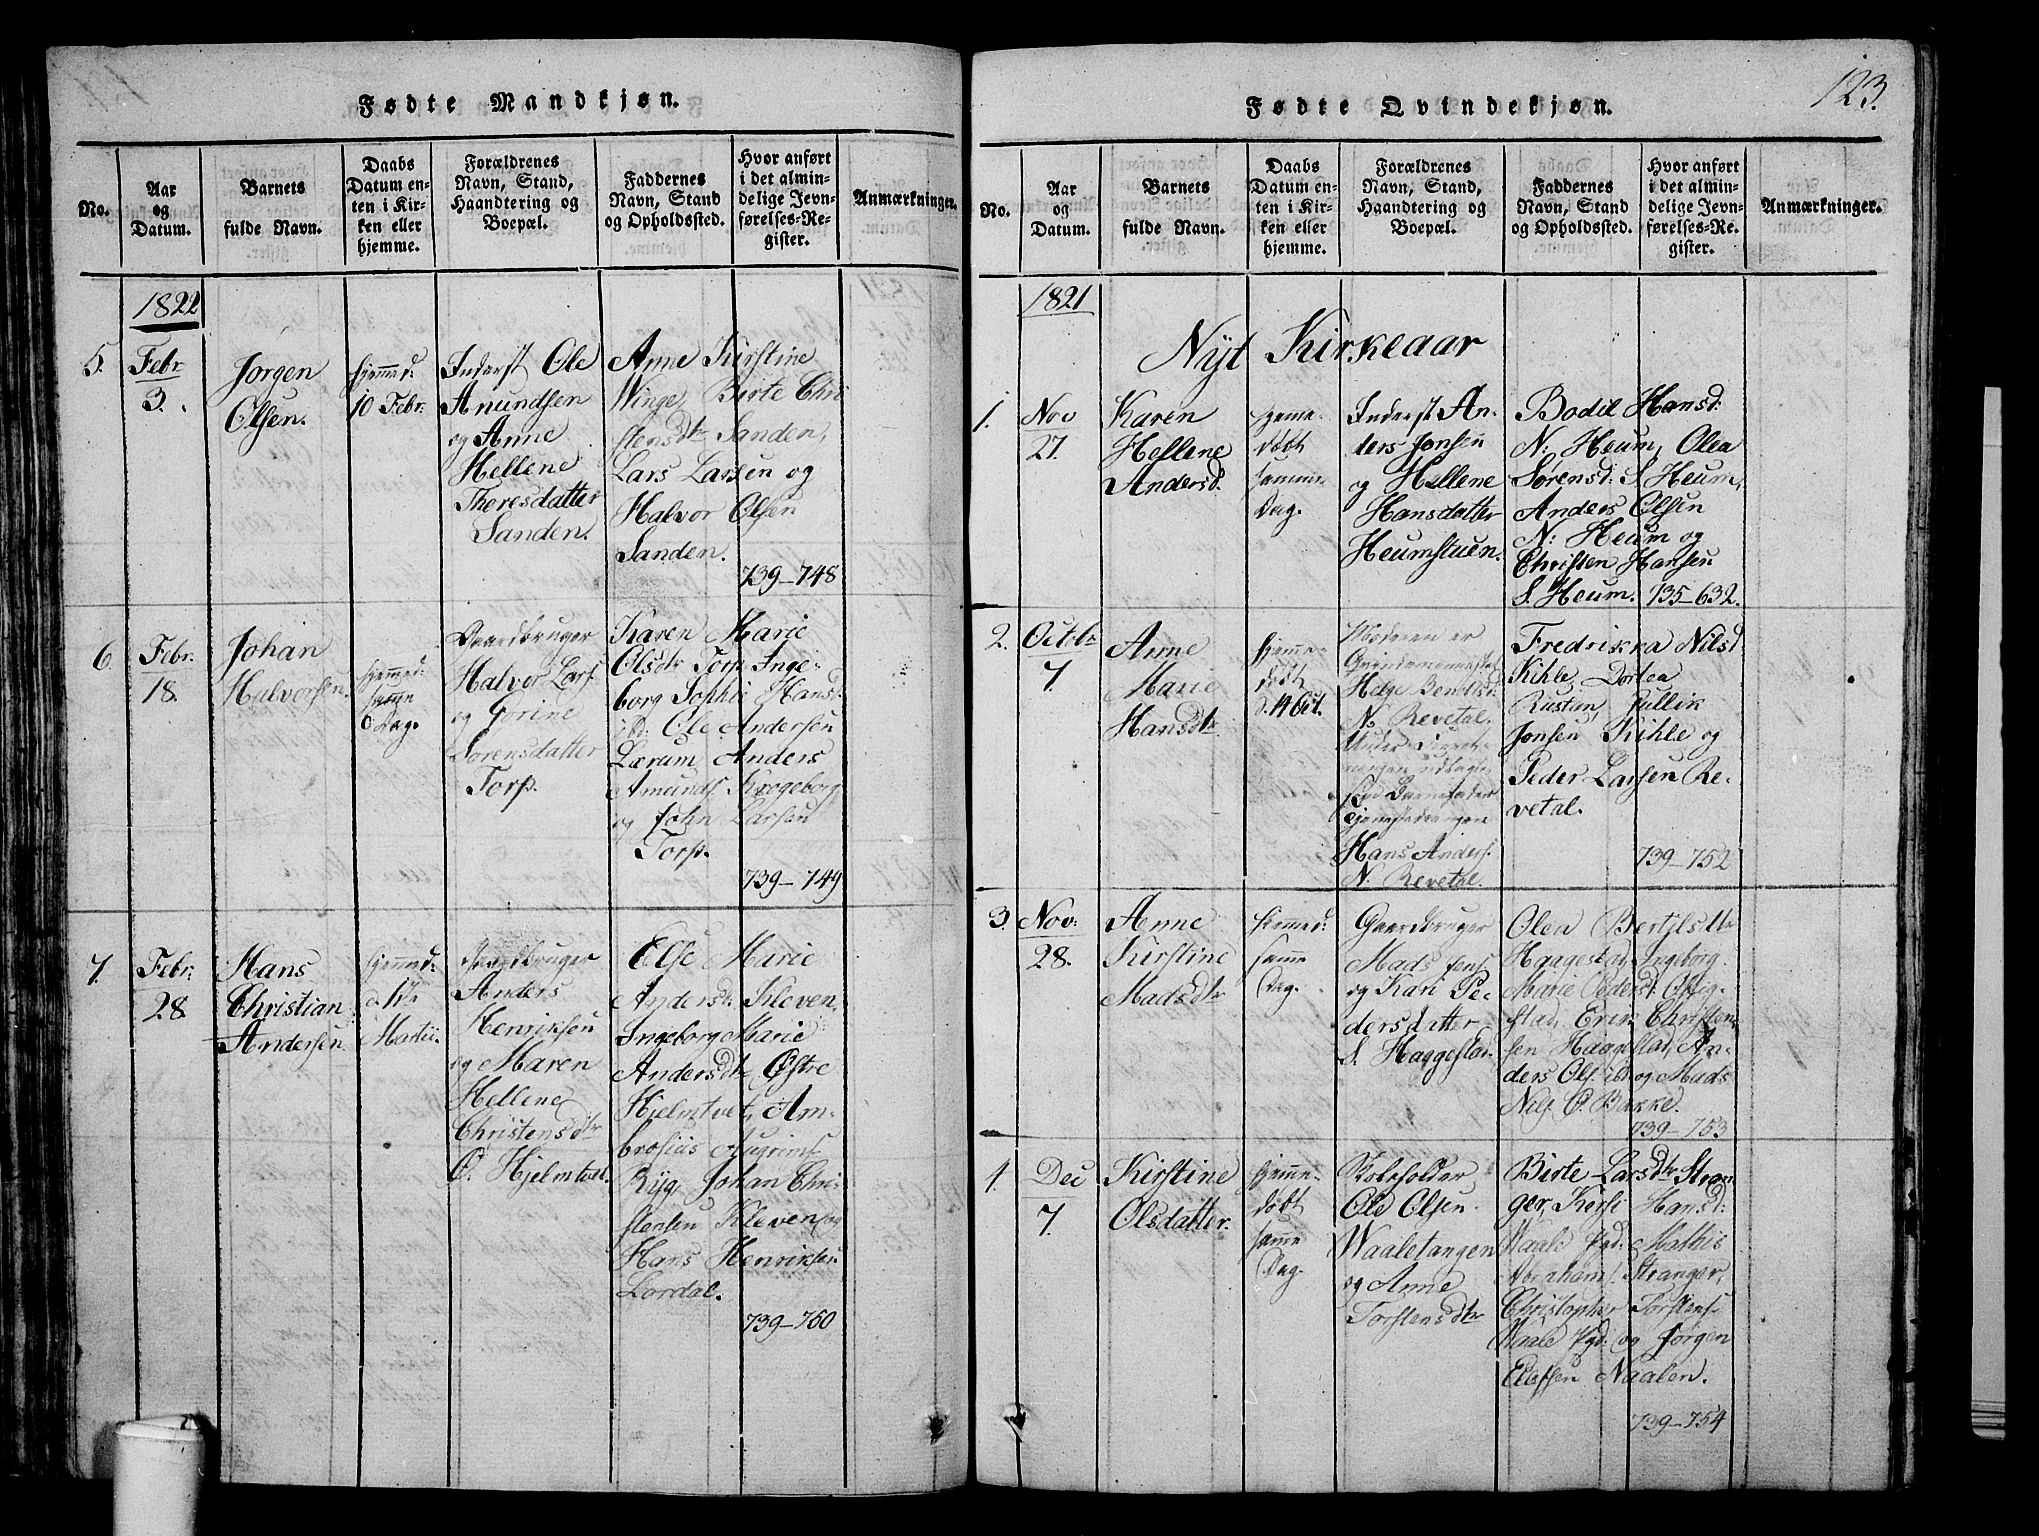 Fødte Mandkjøn.
No.
Aar
og
Datum.
Barnets
fulde Navn.
Daabs
Datum en-
ten i Kir-
ken eller
hjemme.
Forældrenes
Navn, Stand,
Haandtering og
Boepæl.
Faddernes
Navn, Stand
og Opholdssted.
Hvor anført
i det almin-
delige Jevn-
førelses-Re-
gister.
Anmærkninger.
1822
5.
Febr
3.
Jørgen
Olsen.
hjemmed:
10 Febr:
Inderst Ole
Anundsen
og Anne
Hellene
Thoresdatter
Sanden.
Anne Kirstine
Winge, Birte Chri
stensdtr Sanden,
Lars Larsen og
Halvor Olsen
Sanden.
739-748
6.
Febr:
18.
Johan
Halvorsen.
hjemmed:
samme
Dag.
Gaardbruger
Halvor Lars
og Jorine
Sorensdatter
Torp.
Karen Marie
Olsdtr Torp, Inge-
borg Sophie Hans:
ibd: Ole Andersen
Lærum Anders
Amunds Krogeborg
og John Larsen
Torp.
739-749
7.
Febr:
28.
Hans
Christian
Andersen.
hjemmed:
d. 17
Martii.
Gaardbruger
Anders
Henriksen
og Maren
Hellene
Christensdtr
Ø. Hjelmtvet.
Else Marie
Andersdt: Kleven
Ingeborg Marie
Andersdtr Østre
Hjelmtvet, Am-
brosius Augrims
Ryg, Johan Chri-
stensen Kleven og
Hans Henriksen
Lordal.
739-760
Fødte Qvindekjøn.
123.
No.
Aar
og
Datum.
Barnets
fulde Navn.
Daabs
Datum en-
ten i Kir-
ken eller
hjemme.
Forældrenes
Navn, Stand,
Haandtering og
Boepæl.
Faddernes
Navn, Stand
og Opholdssted.
Hvor anført
i det almin-
delige Jevn-
førelses-Re-
gister.
Anmærkninger.
1821
Nyt Kirkeaar
1.
Nov
27.
Karen
Hellene
Andersd.
hjemme-
døbt
samme
Dag.
Inderst An-
ders Jonsen
og Hellene
Hansdatter
Heumstuen.
Bodil Hansd:
N: Heum, Olea
Sørensd: S. Heum,
Anders Olsen
N: Heum og
Christen Hansen
S. Heum. 135-632.
2.
Octobr
7.
Anne
Marie
Hansdtr
hjemme-
døbt
d. 14 Oct.
Moderen er
Helge Bendtsd:
N. Revetal.
Hans Anders.
N. Revetal.
Fredrikka Nilsd
Kihle, Dortea
Rustan, Jullik
Jonsen Kihle og
Peder Larsen Re-
vetal.
739-752
3.
Nov:
28.
Anne
Kirstine
Madsdtr
hjemmed:
samme
Dag.
Gaardbruger
Mads Jens
og Kari Pe-
dersdatter
S. Haggestad.
Olea Bertelsdtr
Haagestad, Ingeborg
Marie Pedersd:
stad, Erik Christen-
sen Haagestad, An-
ders Ols. ibd og Mads
Nils. Ø. Bakke.
739-753
4
Dec
7.
Kirstine
Olsdatter.
hjemme-
døbt
samme
Dag.
Skoleholder
Ole Olsen
Waaletangen
og Anne
Torstensdtr
Birte Larsdtr Stran
ger, Kirsti Hansd:
Waale Pgd: Mathis
Abrahams. Stranger,
Christopher Torstens.
Waale Pgd: og Jørgen
Elefsen Naalen.
739-754